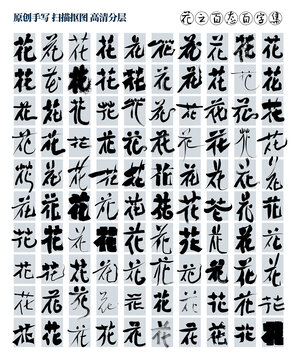 原创手写 扫描抠图 高清分层
花之百态百字集
花花花花花花花花花花
花花花花花花花花花花
花花花花花花花花花花
花花花花花花花花花花
花花花花花花花花花花
花花花花花花花花花花
花花花花花花花花花花
花花花花花花花花花花
花花花花花花花花花花
花花花花花花花花花花